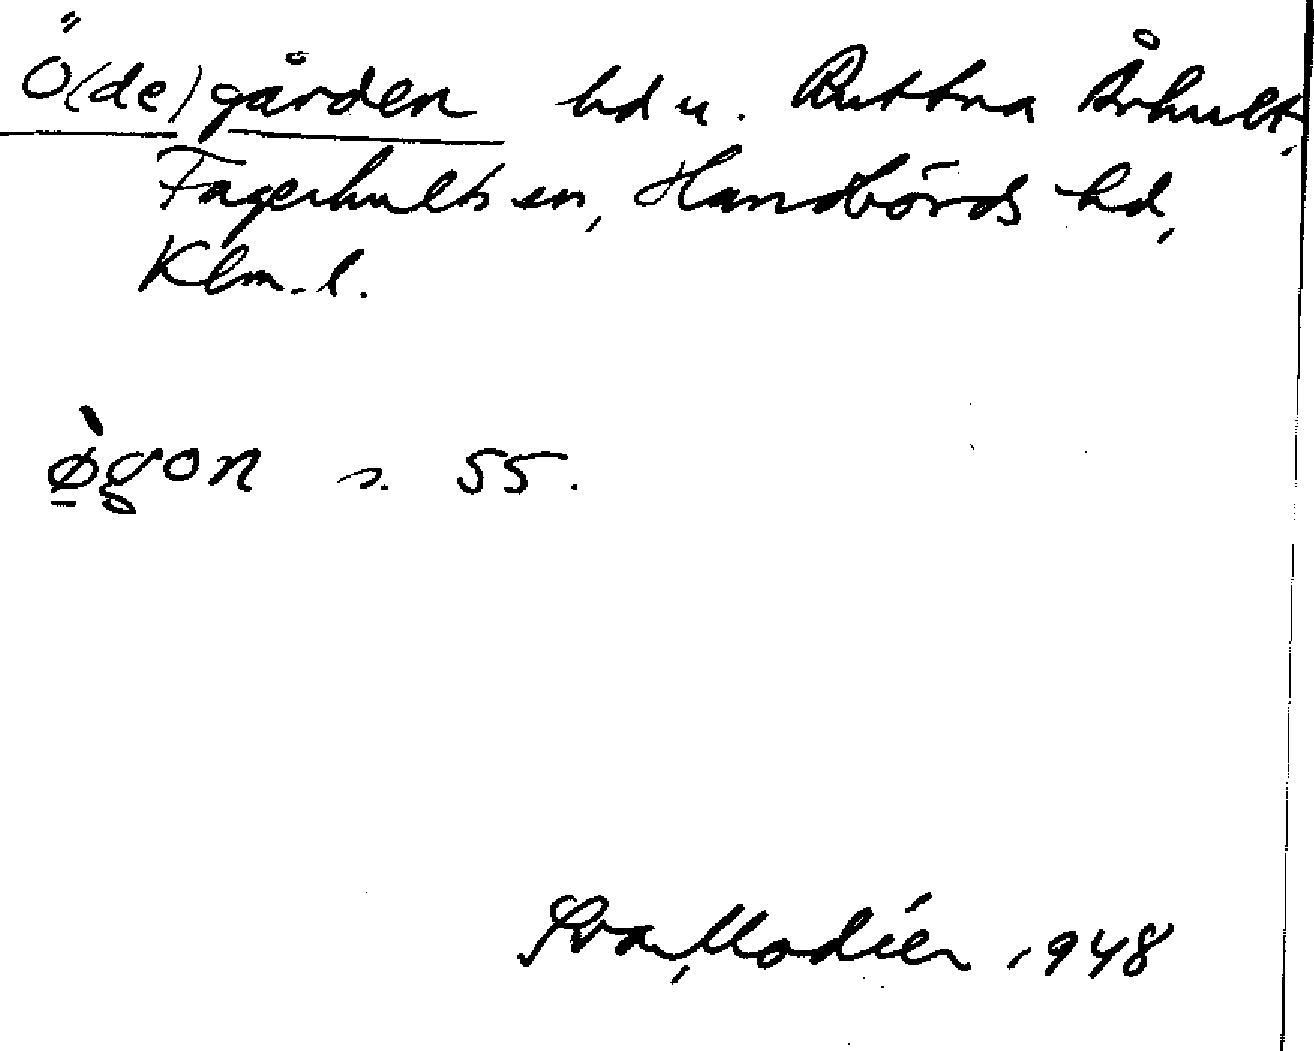 Ö(de)gården hd u. Ruttna Århult,
Fagerhults sn, Handbörds hd,
Klm. l.
ø̀gon s. 55.
Modéer 1948